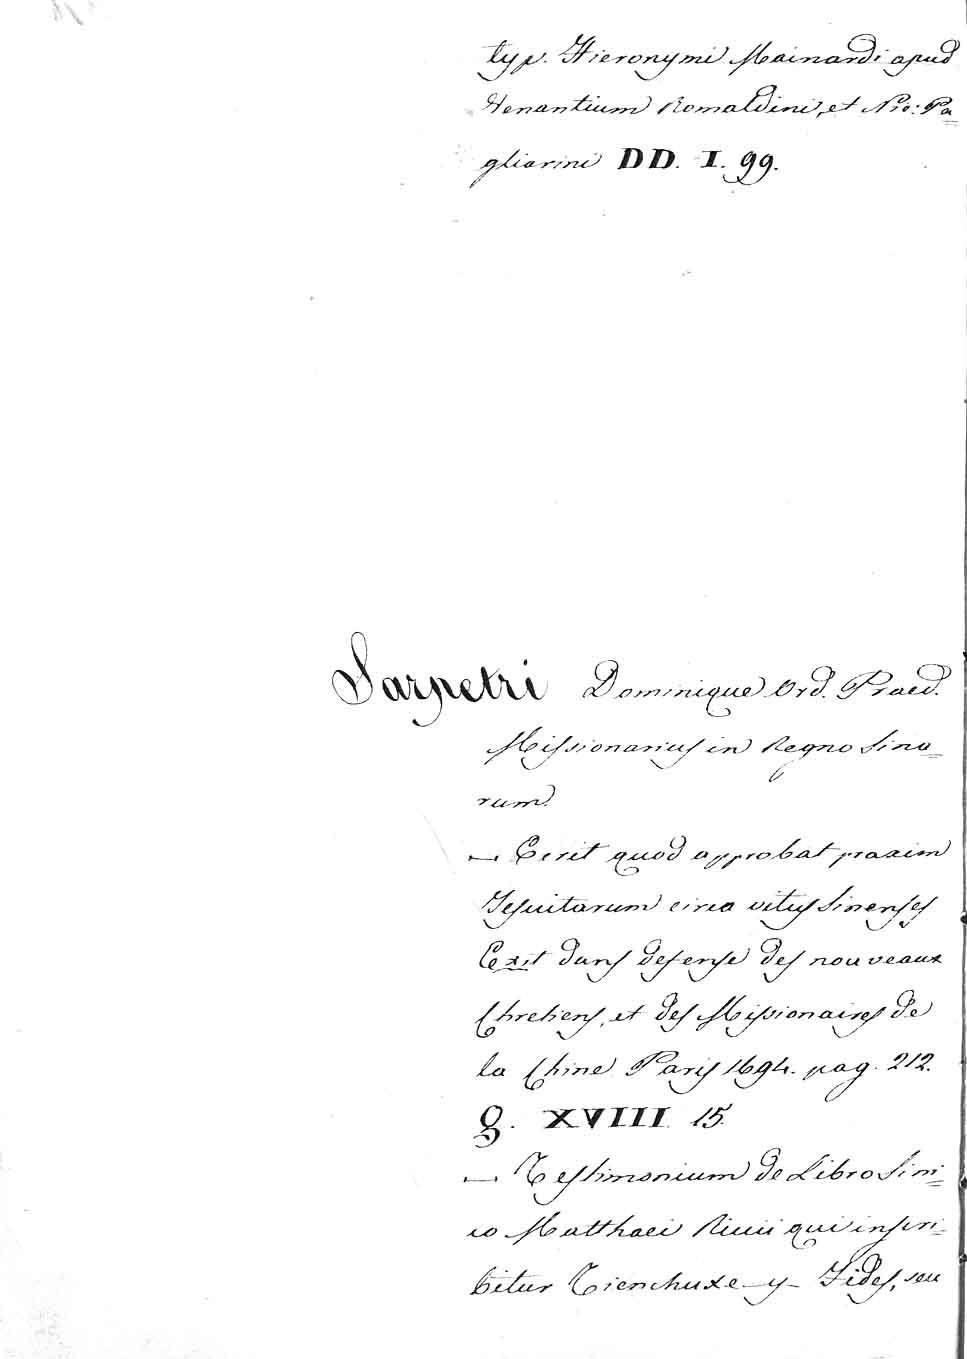 typ. Hieronymi Mainardi apud
Venantium Romaldini, et Nic: Pa=
gliarini DD. I. 99.
Sarpetri Dominique Ord. Praed.
Missionarius in Regno Sina=
rum.
— Ecrit quod approbat praxim
Jesuitarum circa vitus Sinenses
Exit dans defense des nouveaux
Chretiens, et des Missionaires de
la Chine Paris 1694. pag. 212.
g. XVIII 15.
— Testimonium de Libro Sini=
co Matthaei Riccii qui inscri=
bitur Tienchuxe-y- Fides, seu